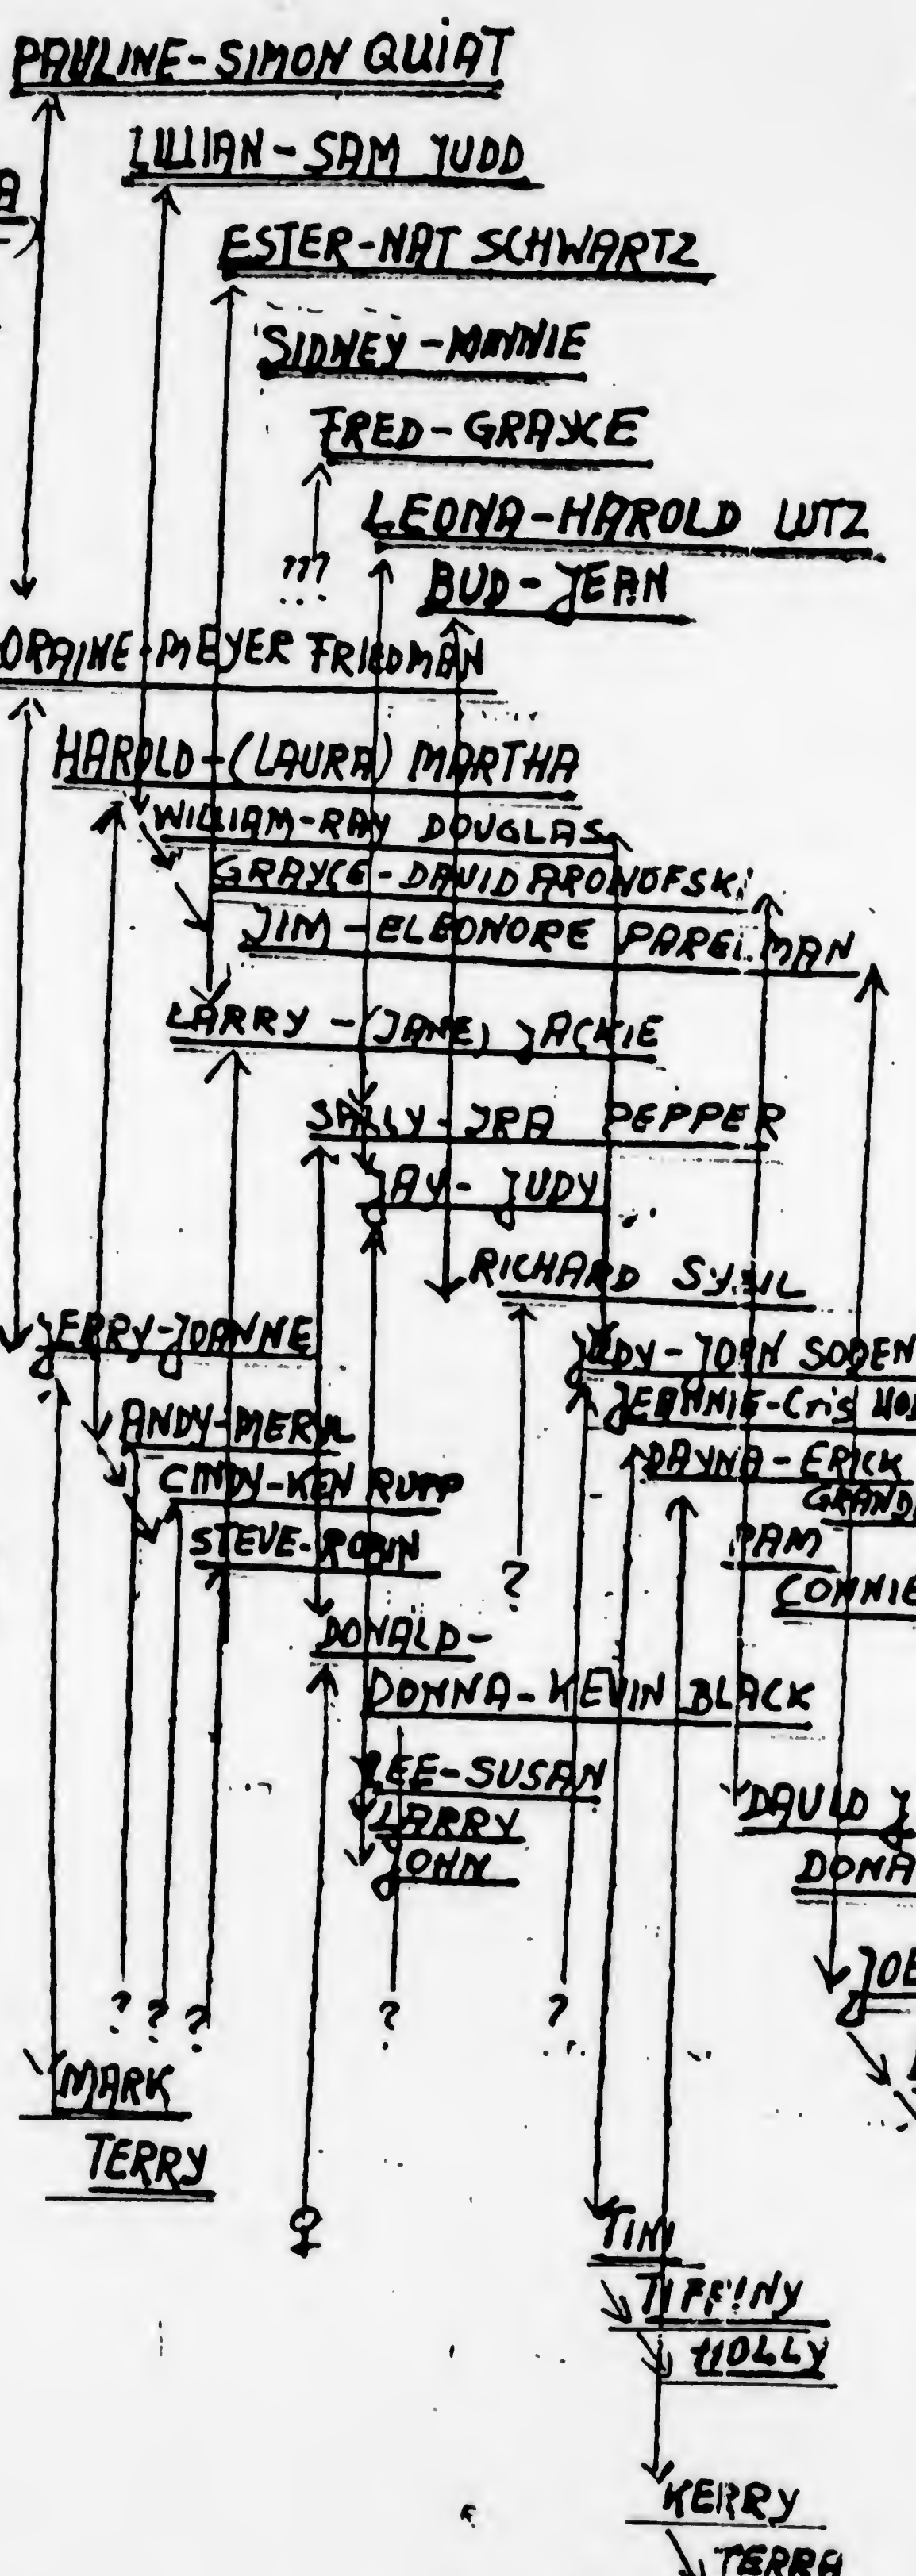 PAULINE-SIMON QUIAT
LILLIAN-SAM JUDD
A
ESTER-NAT SCHWARTZ
SIDNEY-MINNIE
FRED-GRAYCE
LEONA-HAROLD LUTZ
???
BUD-JEAN
ORAINE-MEYER FRIEDMAN
HAROLD-(LAURA) MARTHA
WILLIAM-RAY DOUGLAS
GRAYCE-DAVID ARONOFSKI
JIM-ELEONORE PARELMAN
LARRY-(JANE) JACKIE
SALLY-IRA PEPPER
JAY-JUDY
RICHARD
JERRY-JOANNE
JUDY-JOHN SODEN
JEANNIE-Cris
ANDY-MERYL
DAYNA-ERICK
CINDY-KEN RUPP
GRAND
STEVE-ROBIN
PAM
?
CONNIE
DONALD-
DONNA-KEVIN BLACK
LEE-SUSAN
LARRY
DAVID J
JOHN
DONA
JOE
? ? ?
?
?
MARK
TERRY
♀
TIM
TIFFINY
HOLLY
KERRY
TERRA